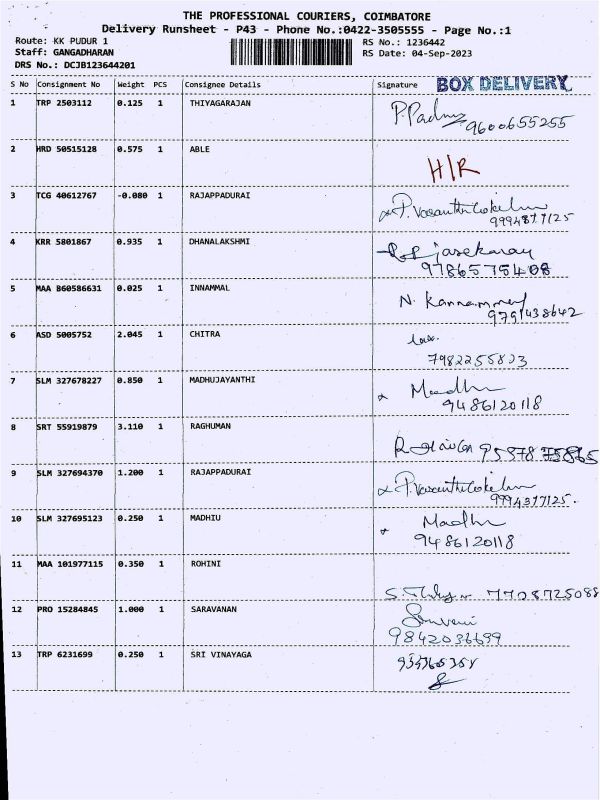 THE PROFESSIONAL COURIERS, COIMBATORE
Delivery Runsheet - P43 - Phone No.:0422-3505555 - Page No.:1
Route: KK PUDUR 1
Staff: GANGADHARAN
DRS No.: DCJB123644201
RS No.: 1236442
RS Date: 04-Sep-2023
S No Consignment No Weight PCS Consignee Details Signature BOX DELIVERY
1 TRP 2503112 0.125 1 THIYAGARAJAN P. Padma
9600655255
2 HRD 50515128 0.575 1 ABLE H/R
3 TCG 40612767 -0.080 1 RAJAPPADURAI
4 KRR 5801867 0.935 1 DHANALAKSHMI
9786575408
5 MAA 860586631 0.025 1 INNAMMAL N. Kannammal
9791438642
6 ASD 5005752 2.045 1 CHITRA
7982255823
7 SLM 327678227 0.850 1 MADHUJAYANTHI Madhu
9486120118
8 SRT 55919879 3.110 1 RAGHUMAN
9 SLM 327694370 1.200 1 RAJAPPADURAI
10 SLM 327695123 0.250 1 MADHIU Madhu
9486120118
11 MAA 101977115 0.350 1 ROHINI
7708725088
12 PRO 15284845 1.000 1 SARAVANAN
9842036699
13 TRP 6231699 0.250 1 SRI VINAYAGA